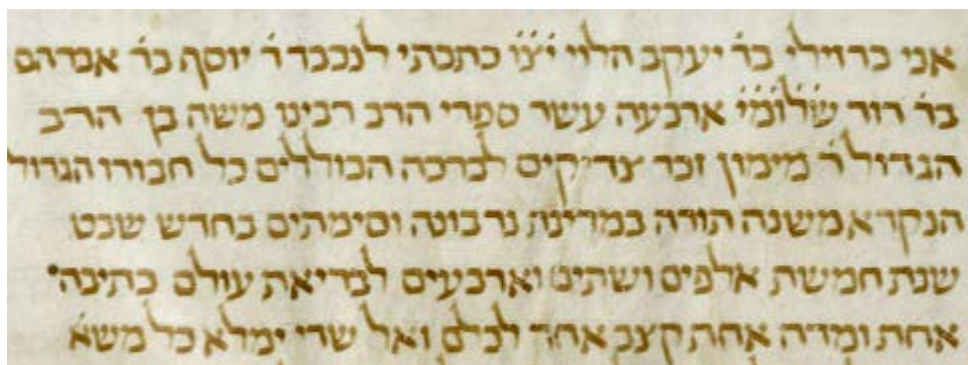 אני ברזילי בר׳ יעקב הלוי י׳צ׳ו׳ כתבתי לנכבד ר׳ יוסף בר׳ אברהם
בר׳ דוד ש׳ל׳ו׳מ׳י׳ ארבעה עשר ספרי הרב רבינו משה בן הרב
הגדול ר׳ מימון זכר צדיקים לברכה הכוללים כל חבורו הגדול
הנקרא משנה תורה במדינה נרבונה וסימתים בחדש שבט
שנת חמשת אלפים ושתים וארבעים לבריאת עולם כתיבה
אחת ומדה אחת קצב אחד לכלם ואל שדי ימלא כל משא